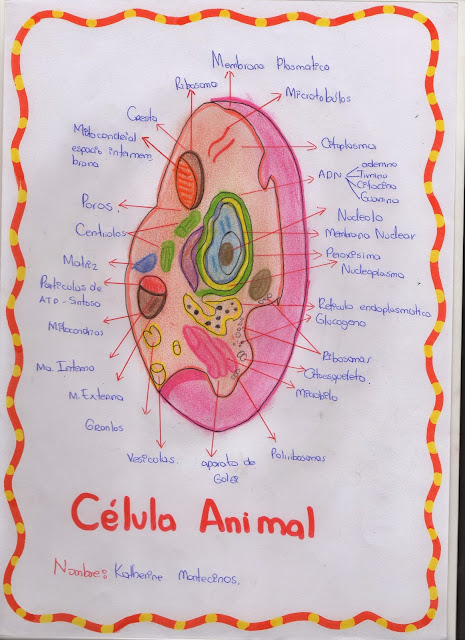 Membrana Plasmatica
Ribosoma
Microtobulos
Cresta
Mitocondrial
espacio intermem
brana
Citoplasma
ADN
adenina
Timina
Citocina
Guanina
Poros.
Nucleolo
Centriolos
Membrana Nuclear
Matriz
Peroxisima
Nucleoplasma
Particulas de
ATP-Sintasa
Reticulo endoplasmatico
Glucogeno
Mitocondrias
Ribosomas
Ma. Interna
Citoesqueleto.
M. Externa
Granlos
Vesiculas.
aparato de
Golgi
Poliribosomas
Célula Animal
Nombre: Katherine Montecinos.